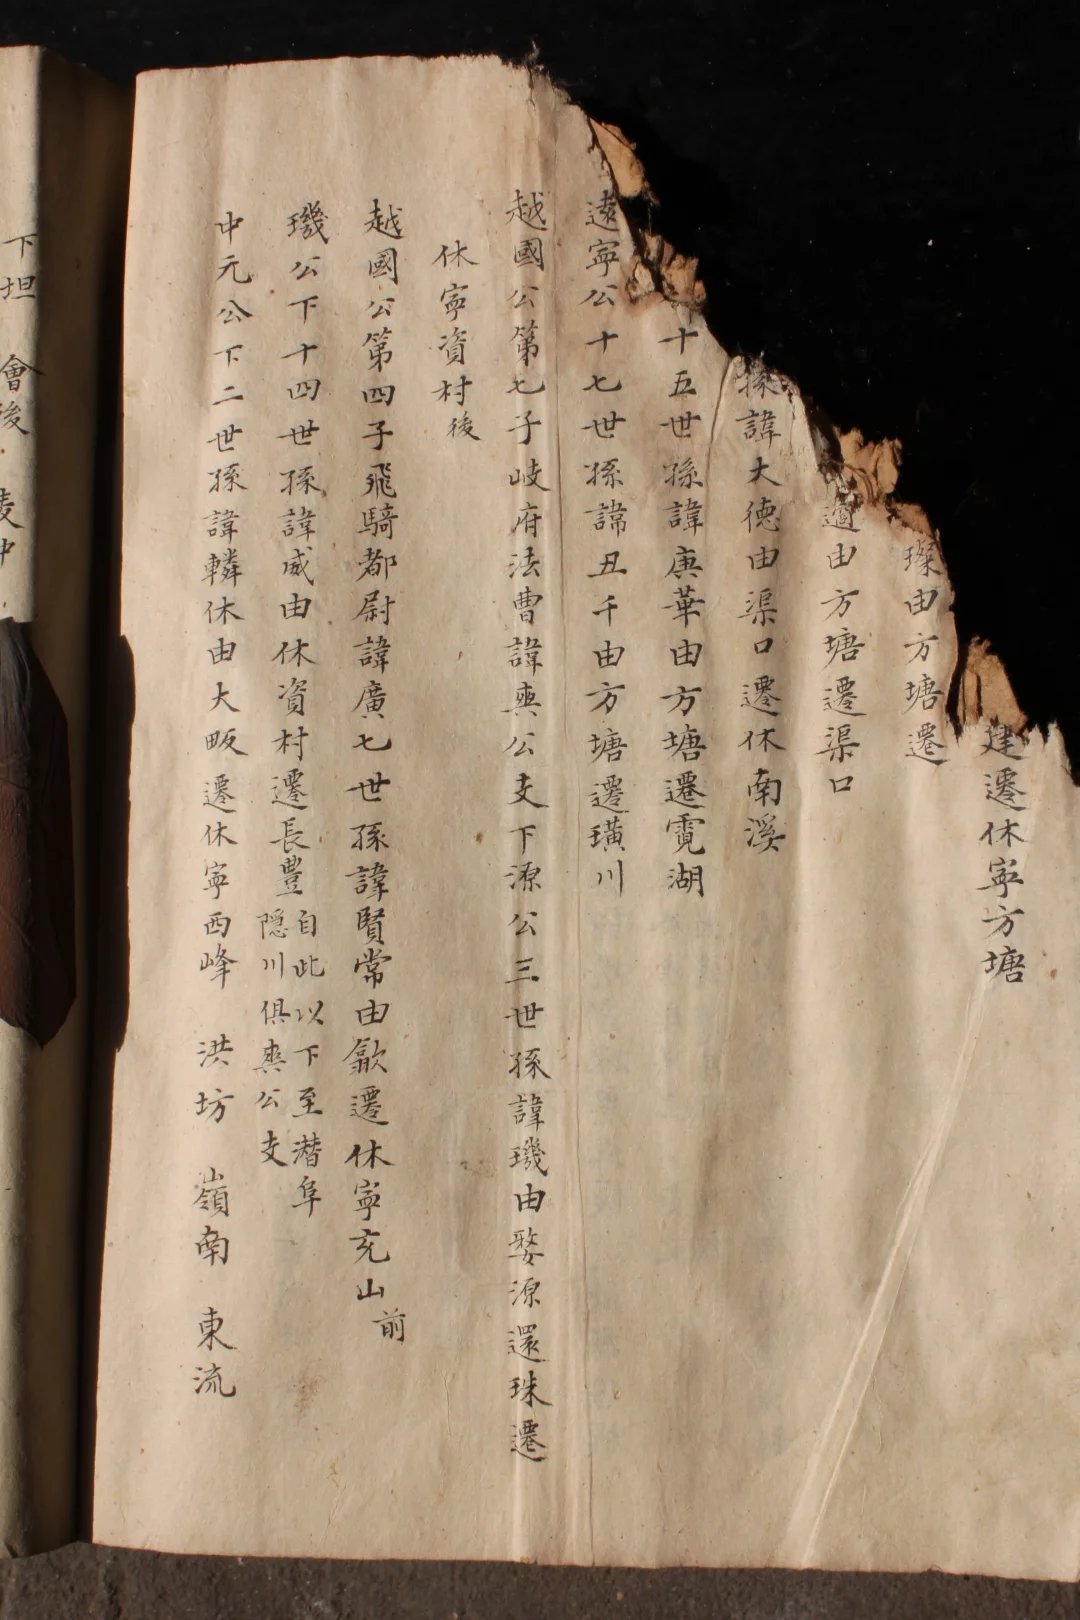 建遷休寧方塘
璨由方塘遷
適由方塘遷渠口
孫諱大德由渠口遷休南溪
十五世孫諱庚華由方塘遷霓湖
遠寧公十七世孫諱丑千由方塘遷璜川
越國公第七子岐府法曹諱爽公支下源公三世孫諱璣由婺源還珠遷
休寧資村後
越國公第四子飛騎都尉諱廣七世孫諱賢常由歙遷休寧充山前
璣公下十四世孫諱威由休資村遷長豐自此以下至潛阜
隱川俱爽公支
中元公下二世孫諱轔休由大畈遷休寧西峰 洪坊 嶺南 東流
下坦 會後